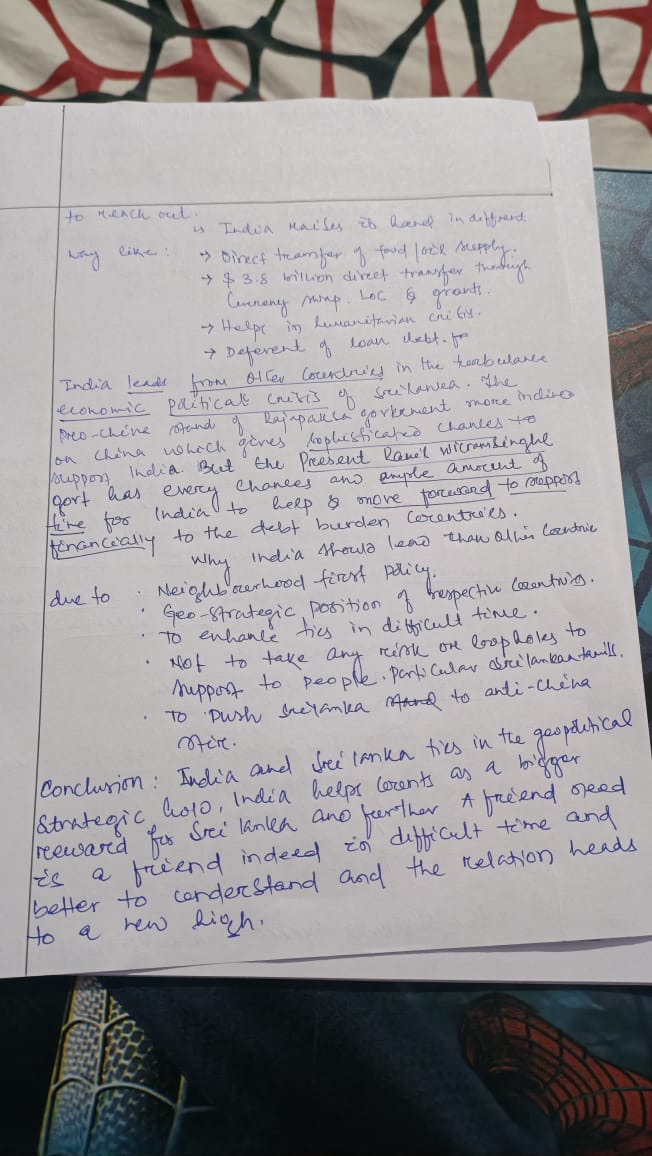 to reach out.
India raises its hand in different
way like : → Direct transfer of food / oil supply.
→ $ 3.8 billion direct transfer through
Currency swap. LOC & grants.
→ Helps in humanitarian crisis.
→ Deferent of loan debt.
India leads from other countries in the turbulance
economic Political crisis of Sri lanka. The
Pro-chine stand of Rajapaksa government more
on China which gives sophisticated chances to
support India. But the Present Ranil Wicramsinghe
govt has every chances and ample amount of
time for India to help & move forward to support
financially to the debt burden countries.
Why India should lead than other Countrie
due to : Neighbourhood first Policy.
· Geo-strategic position of respective countries.
· To enhance ties in difficult time.
· Not to take any risk or loopholes to
support to people. Particular Srilankan tamils.
· To Push Srilanka to anti-China
Conclusion : India and Sri lanka ties in the geopolitical
strategic India helps counts as a bigger
reward for Sri lanka and further A friend need
is a friend indeed in difficult time and
better to understand and the relation heads
to a new high.